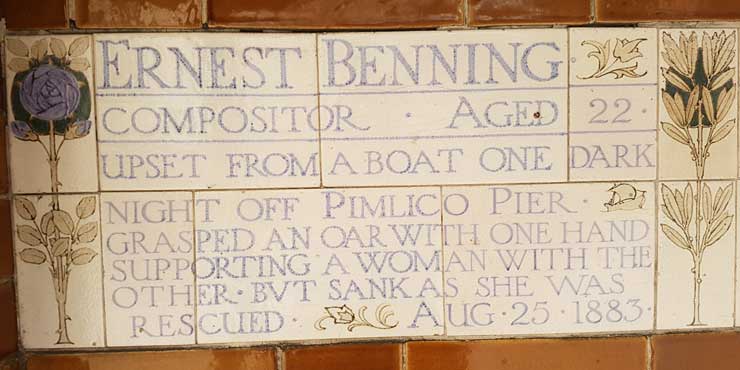 ERNEST BENNING
COMPOSITOR · AGED 22 ·
UPSET FROM A BOAT ONE DARK
NIGHT OFF PIMLICO PIER ·
GRASPED AN OAR WITH ONE HAND
SUPPORTING A WOMAN WITH THE
OTHER · BVT SANK AS SHE WAS
RESCUED · AUG · 25 · 1883 ·